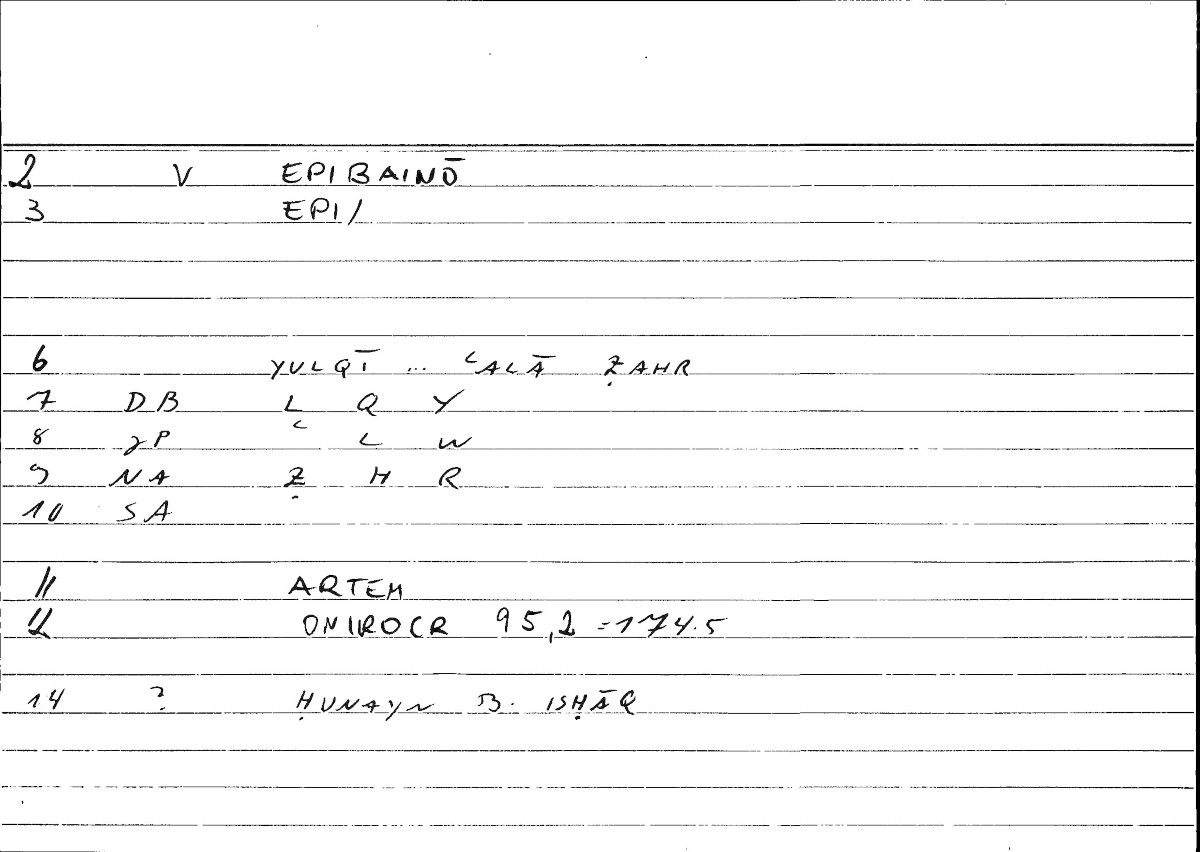 2 V EPIBAINŌ
3 EPI/
6 YULQĪ ... ʿALĀ ẒAHR
7 DB L Q Y
8 γP ʿ L W
9 NA Ẓ H R
10 SA
11 ARTEM
12 ONIROCR 95,2 =174.5
14 ? ḤUNAYN B. ISḤĀQ